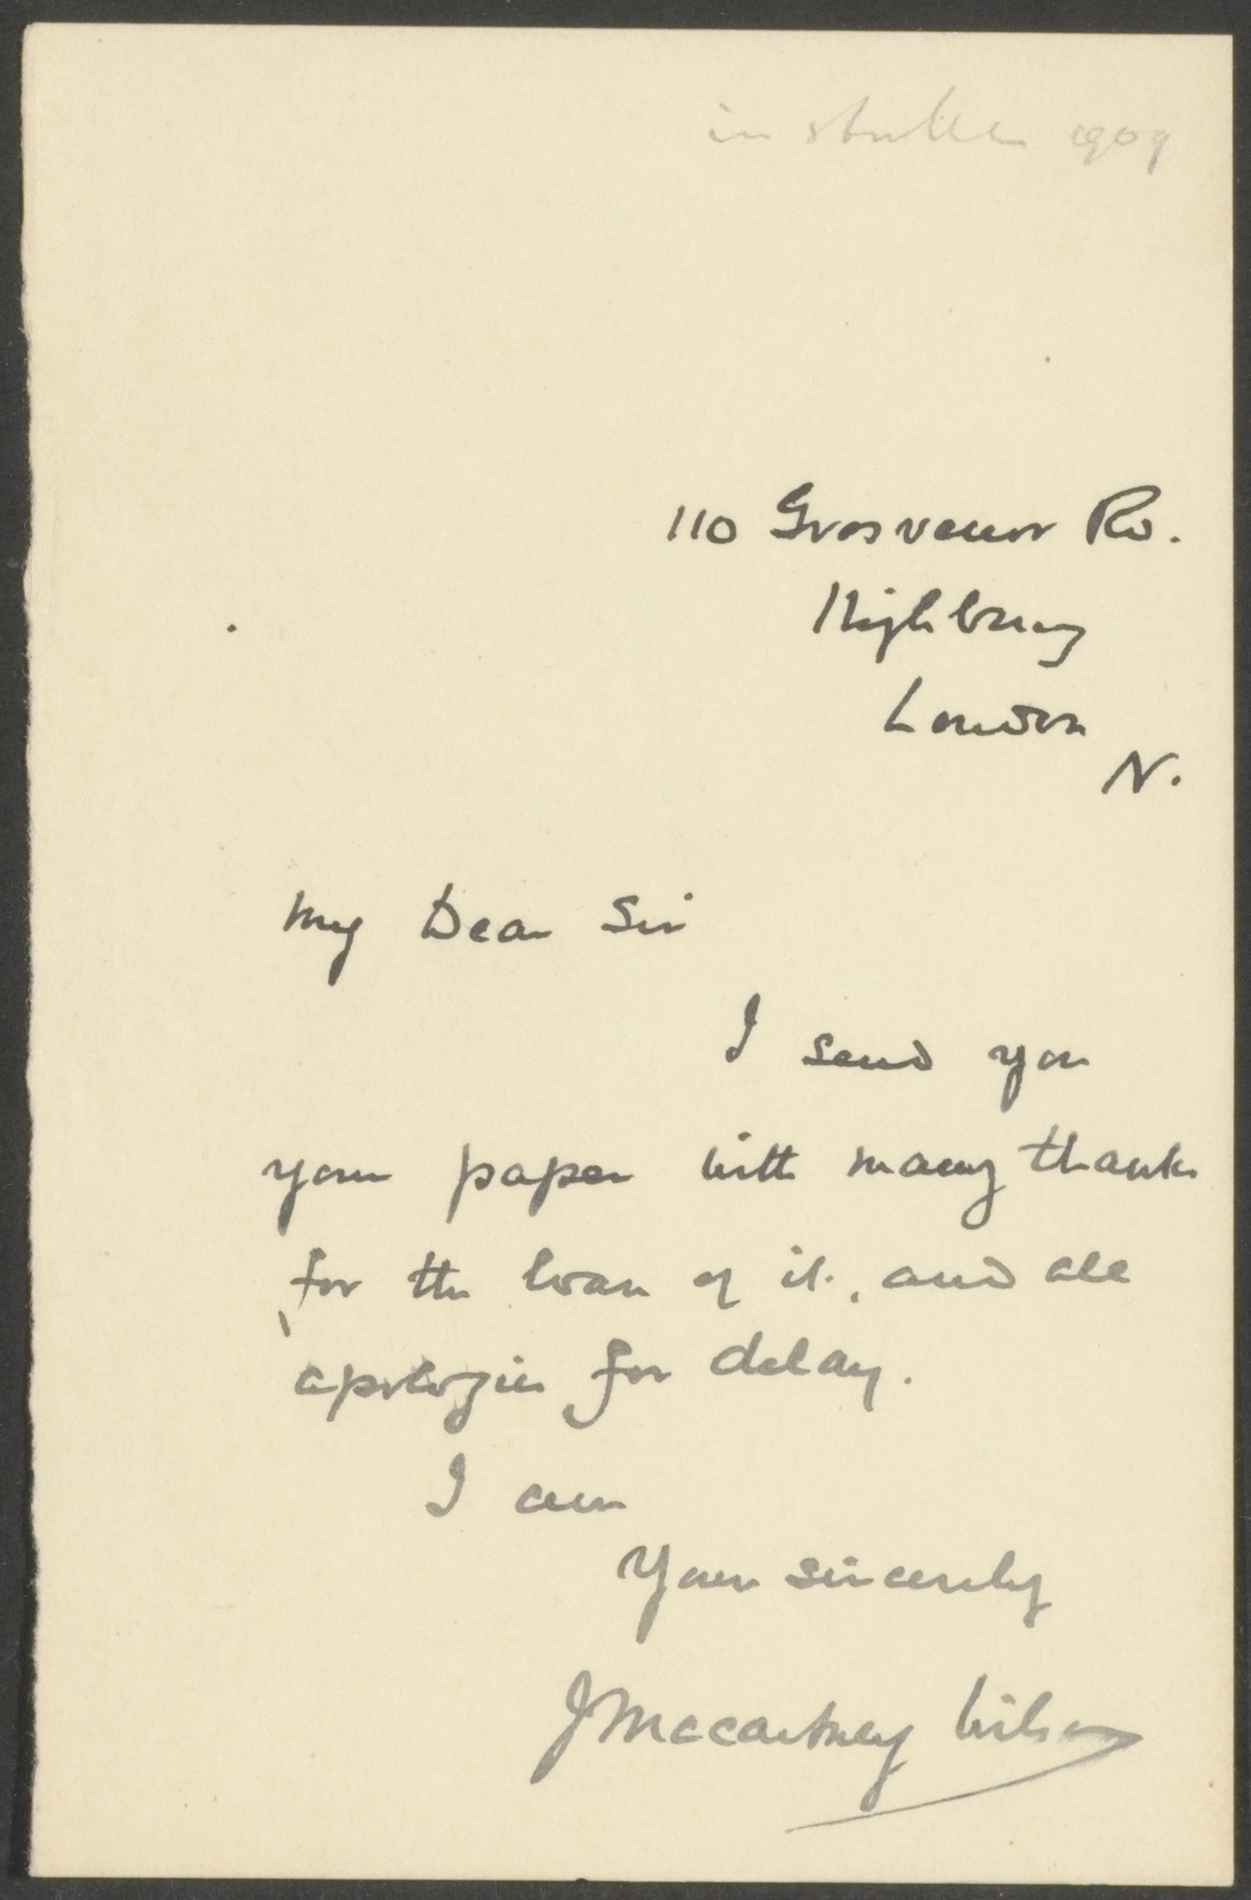 1909
110 Grosvenor Rd.
Highbury
London
N.
My Dear Sir
I send you
your paper with many thanks
for the loan of it, and all
apologies for delay.
I am
Yours sincerely
J Maccartney Wilson